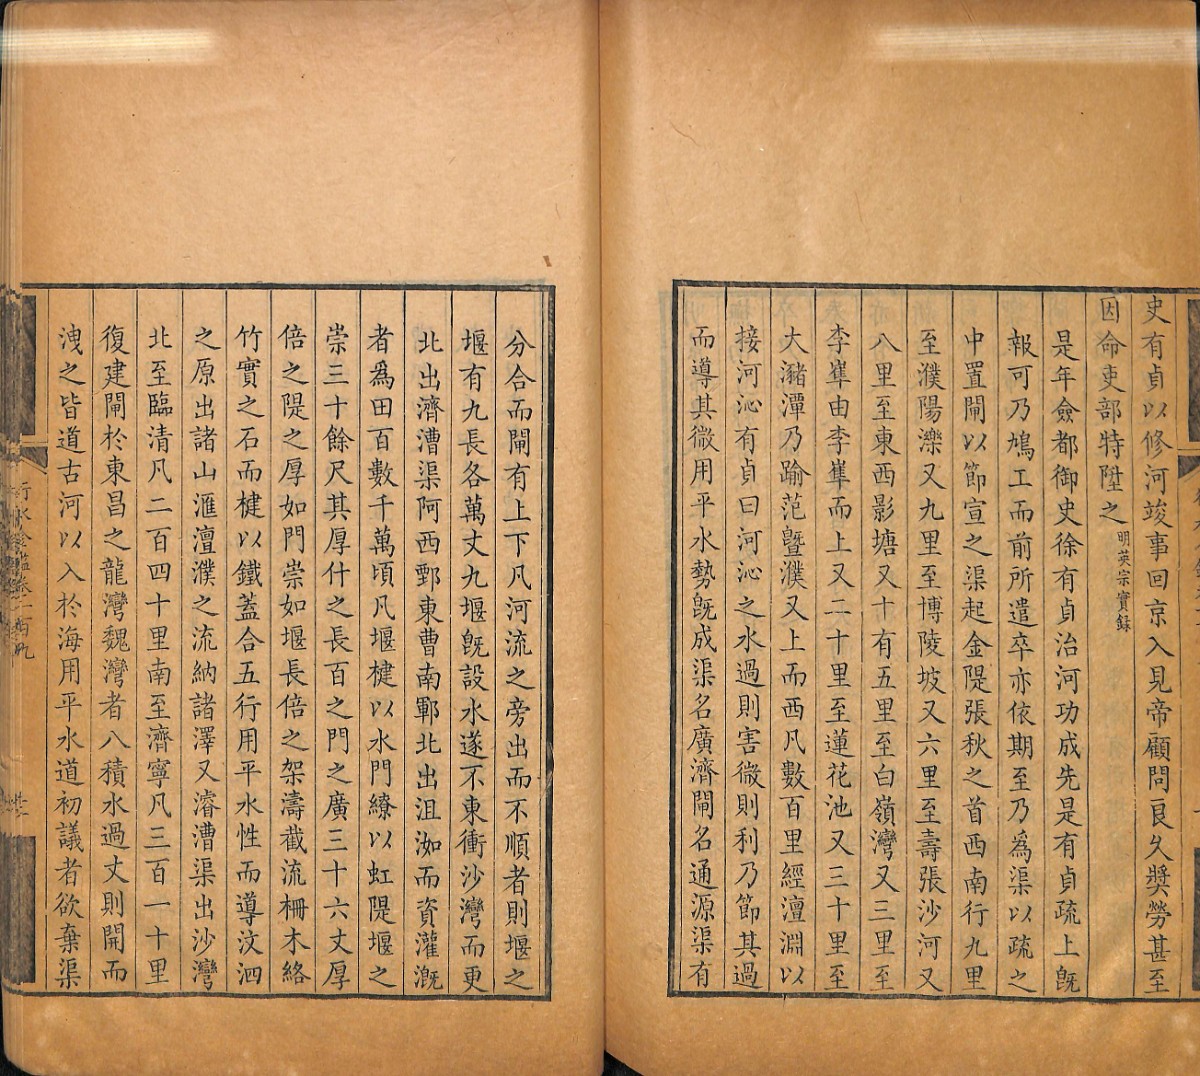 史有貞以修河竣事回京入見帝顧問良久奬勞甚至
因命吏部特陞之明英宗實錄
是年僉都御史徐有貞治河功成先是有貞疏上旣
報可乃鳩工而前所遣卒亦依期至乃爲渠以疏之
中置閘以節宣之渠起金隄張秋之首西南行九里
至濮陽濼又九里至博陵坡又六里至壽張沙河又
八里至東西影塘又十有五里至白嶺灣又三里至
李𡸴由李𡸴而上又二十里至蓮花池又三十里至
大瀦潭乃踰范曁濮又上而西凡數百里經澶淵以
接河沁有貞曰河沁之水過則害微則利乃節其過
而導其微用平水勢旣成渠名廣濟閘名通源渠有
分合而閘有上下凡河流之旁出而不順者則堰之
堰有九長各萬丈九堰旣設水遂不東衝沙灣而更
北出濟漕渠阿西鄄東曹南鄆北出沮洳而資灌漑
者為田百數千萬頃凡堰楗以水門繚以虹隄堰之
崇三十餘尺其厚什之長百之門之廣三十六丈厚
倍之隄之厚如門崇如堰長倍之架濤截流柵木絡
竹實之石而楗以鐵蓋合五行用平水性而導汶泗
之原出諸山滙澶濮之流納諸澤又濬漕渠出沙灣
北至臨清凡二百四十里南至濟寧凡三百一十里
復建閘於東昌之龍灣魏灣者八積水過丈則開而
洩之皆道古河以入於海用平水道初議者欲棄渠